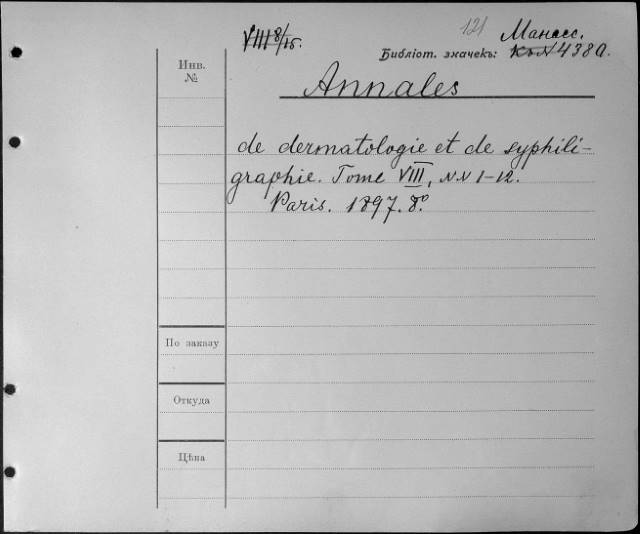 VIII 8/15.
121 Манасс.
Библіот. значекъ: К №438а.
Инв.
№
Annales
de dermatologie et de syphili-
graphie. Tome VIII, NN 1-12.
Paris. 1897. 8º.
По заказу
Откуда
Цѣна